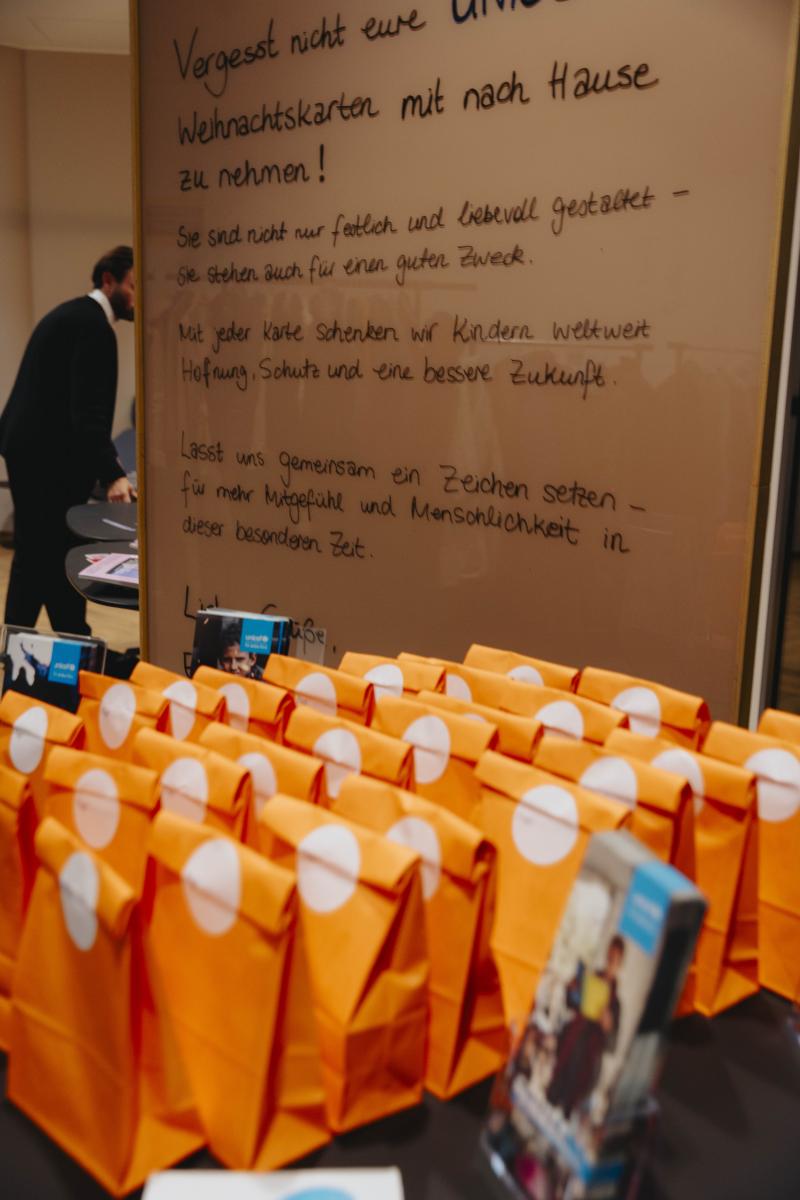 Vergesst nicht eure
Weihnachtskarten mit nach Hause
zu nehmen!
Sie sind nicht nur festlich und liebevoll gestaltet –
sie stehen auch für einen guten Zweck.
Mit jeder Karte schenken wir Kindern weltweit
Hofnung, Schutz und eine bessere Zukunft.
Lasst uns gemeinsam ein Zeichen setzen –
für mehr Mitgefühl und Menschlichkeit in
dieser besonderen Zeit.
unicef
unicef
unicef